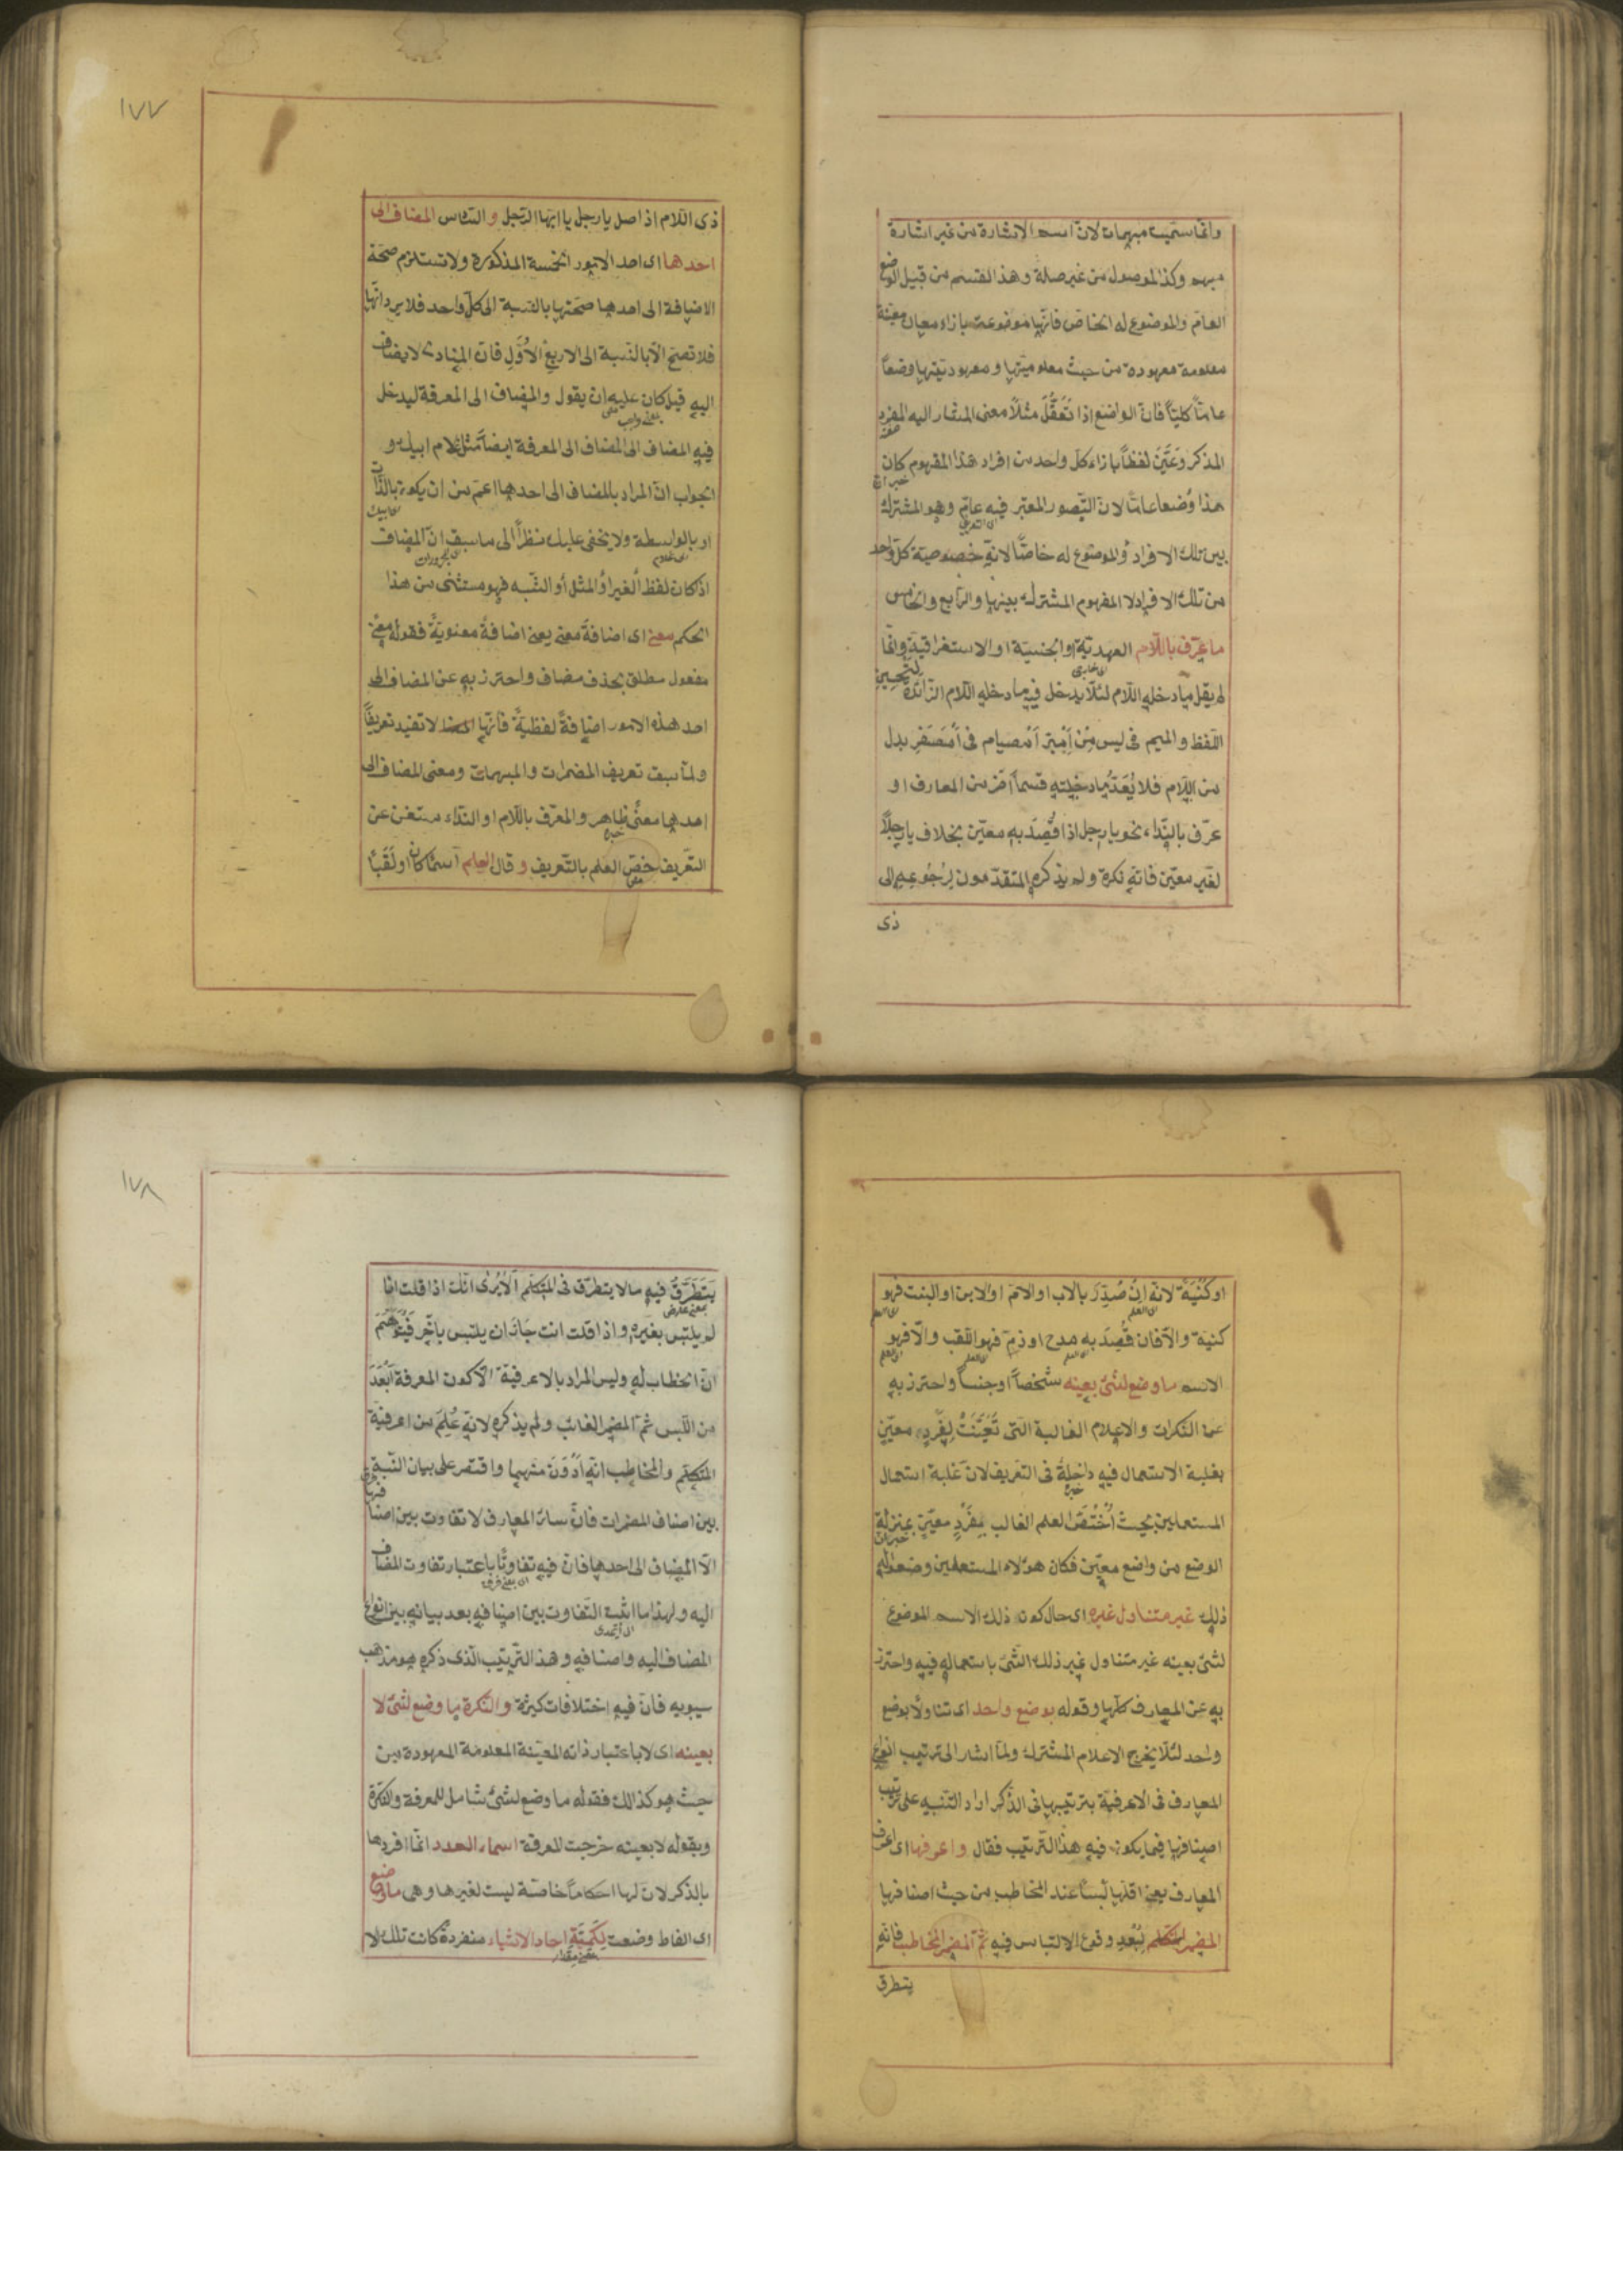 وانما سميت مبهمات لان اسم الاشارة من غير اشارة
مبهم وكذا الموصول من غير صلة وهذا القسم من قبيل الوضع
العام والموضوع له الخاص فانها موضوعة بازاء معان معينة
معلومة معهودة من حيث معلوميتها ومعهوديتها وضعاً
عامّاً كليّاً فان الواضع اذا تَعَقَّلَ مثلاً معنى المشار اليه المفرد
المذكر وعَيَّنَ لفظاً بازاء كل واحد من افراد هذا المفهوم كان
هذا وضعا عامّا لان التصور المعتبر فيه عام وهو المشترك
بين تلك الافراد والموضوع له خاصّا لانه خصوصية كل واحد
من تلك الافراد لا المفهوم المشترك بينها والرابع والخامس
ما عرّف باللام العهدية او الجنسية او الاستغراقية وانما
لم يقل ما دخله اللام لئلا يدخل فيه ما دخله اللام الزائدة لتحسين
اللفظ والميم في ليس مِنْ اَمْبِرّ اَمْصيام في اَمْسَفَرِ بدل
من اللام فلا يُعَدّ ما دخلته قسماً آخر من المعارف او
عرّف بالنداء نحو يا رجل اذا قُصِدَ به معيّن بخلاف يا رجلاً
لغير معيّن فانه نكرة ولم يذكره المتقدمون لرجوعه الى
ذى
١٧٧
ذى اللام اذ اصل يا رجل يا ايها الرجل والسادس المضاف الى
احدها اى احد الامور الخمسة المذكورة ولا تستلزم صحة
الاضافة الى احدها صحتها بالنسبة الى كل واحد فلا يرد انها
فلا تصح الا بالنسبة الى الاربع الاُوَلِ فان المنادى لا يضاف
اليه قيل كان عليه ان يقول والمضاف الى المعرفة ليدخل
فيه المضاف الى المضاف الى المعرفة ايضاً مثل غلام ابيك و
الجواب ان المراد بالمضاف الى احدها اعم من ان يكون بالذات
او بالواسطة ولا يخفى عليك نظراً الى ما سبق ان المضاف
اذ كان لفظ الغير او المثل او الشبه فهو مستثنى من هذا
الحكم معنى اى اضافةً معنى يعنى اضافةً معنويةً فقوله معنى
مفعول مطلق بحذف مضاف واحترز به عن المضاف الى
احد هذه الامور اضافةً لفظيةً فانها لا تفيد تعريفاً
ولما سبق تعريف المضمرات والمبهمات ومعنى المضاف الى
احدها معنًى ظاهر والمعرّف باللام او النداء مستغن عن
التعريف خصّ العلم بالتعريف وقال العلم اسمًا كان او لَقَبًا
او كُنْيَةً لانه ان صُدِّرَ بالاب او الام او الابن او البنت فهو
كنية والا فان قُصِدَ به مدح او ذم فهو اللقب والا فهو
الاسم ما وضع لشئ بعينه شخصاً او جنساً واحترز به
عن النكرات والاعلام الغالبة التى تَعَيَّنَتْ لِفَرْدٍ معيّنٍ
بغلبة الاستعمال فيه داخلة فى التعريف لان غلبة استعمال
المستعملين بحيث اُخْتُصّ العلم الغالب بِفَرْدٍ معيّنٍ بمنزلة
الوضع من واضع معيّن فكان هؤلاء المستعملين وضعوا له
ذلك غير متناول غيره اى حال كون ذلك الاسم الموضوع
لشئ بعينه غير متناول غير ذلك الشئ باستعماله فيه واحترز
به عن المعارف كلها وقوله بوضع واحد اى تناولًا بوضع
واحد لئلا يخرج الاعلام المشتركة ولما اشار الى ترتيب انواع
المعارف فى الاعرفية بترتيبها فى الذكر اراد التنبيه على ترتيب
اصنافها فيما يكون فيه هذا الترتيب فقال واعرفها اى اعرف
المعارف يعنى اقلها لَبْساً عند المخاطب من حيث اصنافها
المضمر المتكلم لِبُعْدِ وقوع الالتباس فيه ثم المضمر المخاطب فانه
يتطرق
١٧٨
يَتَطَرَّقُ فيه ما لا يتطرق فى المتكلم ألا يُرى انك اذا قلت انا
لم يلتبس بغيره واذا قلت انت جَازَ ان يلتبس بآخر فيُتَوَهَّمَ
انّ الخطاب له وليس المراد بالاعرفية الا كون المعرفة اَبْعَدَ
من اللبس ثم المضمر الغائب ولم يذكره لانه عُلِمَ من اعرفية
المتكلم والمخاطب انه اَدْوَنَ منهما واقتصر على بيان النسبة
بين اصناف المضمرات فان سائر المعارف لا تفاوت بين اصنافها
الا المضاف الى احدها فان فيه تفاوتًا باعتبار تفاوت المضاف
اليه ولهذا ما اثبت التفاوت بين اصنافه بعد بيانه بين انواع
المضاف اليه واصنافه وهذا الترتيب الذى ذكره هو مذهب
سيبويه فان فيه اختلافات كثيرة والنكرة ما وضع لشئ لا
بعينه اى لا باعتبار ذاته المعينة المعلومة المعهودة من
حيث هو كذلك فقوله ما وضع لشئ شامل للمعرفة والنكرة
وبقوله لا بعينه خرجت المعرفة اسماء العدد انما افردها
بالذكر لان لها احكاماً خاصّة ليست لغيرها وهى ما وضع
اى الفاظ وضعت لِكَمِّيَّةِ احاد الاشياء منفردةً كانت تلك الا